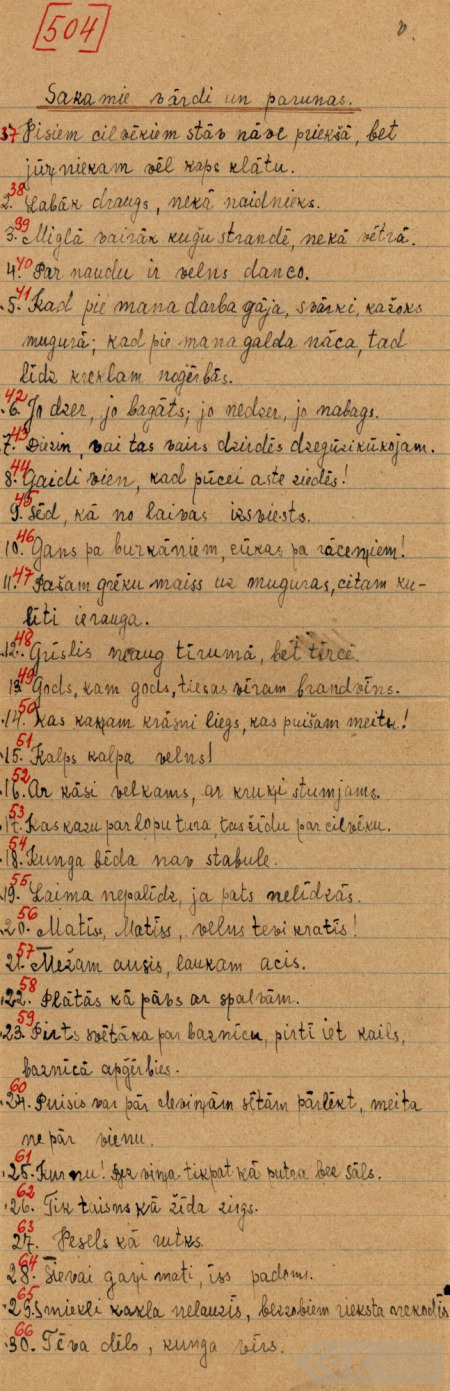 [504]
Sakamie vārdi un parunas.
37 Visiem cilvēkiem stāv nāve priekšā, bet
jūrniekam vēl kaps klātu.
38 2. Labāk draugs, nekā naidnieks.
39 3. Miglā vairāk kuģu strandē, nekā vētrā.
40 4. Par naudu ir velns danco.
41 5. Kad pie mana darba gāja, svārki, kažoks
mugurā; kad pie mana galda nāca, tad
līdz kreklam noģērbās.
42 6. Jo dzer, jo bagāts; jo nedzer, jo nabags.
43 7. Diezin, vai tas vairs dzirdēs dzegūzi kūkojam.
44 8. Gaidi vien, kad pūcei aste ziedēs!
45 9. Sēd, kā no laivas izsviests.
46 10. Gans pa burkāniem, cūkas pa rāceņiem!
47 11. Pašam grēku maiss uz muguras, citam ku-
līti ierauga.
48 12. Grīslis neaug tīrumā, bet tīrcē.
49 13. Gods, kam gods, tiesas vīram brandvīns.
50 14. Kas kaķam krāsni liegs, kas puišam meitu!
51 15. Kalps kalpa velns!
52 16. Ar kāsi velkams, ar kruķi stumjams.
53 17. Kas kazu par lopu tura, tas žīdu par cilvēku.
54 18. Kunga bēda nav stabule.
55 19. Laima nepalīdz, ja pats nelīdzās.
56 20. Matīs, Matīss, velns tevi kratīs!
57 21. Mežam ausis, laukam acis.
58 22. Plātās kā pāvs ar spalvām.
59 23. Pirts svētāka par baznīcu, pirtī iet kails,
baznīcā apģērbies.
60 24. Puisis var pār deviņām sētām pārlēkt, meita
ne pār vienu.
61 25. Kur nu! Bez viņa tikpat kā putra bez sāls.
62 26. Tik taisns kā žīda zirgs.
63 27. Vesels kā rutks.
64 28. Sievai gaŗi mati, īss padoms.
65 29. Smiekli kakla nelauzīs, bezzobiem rieksta nekodīs
66 30. Tēva dēls, kunga vīrs.